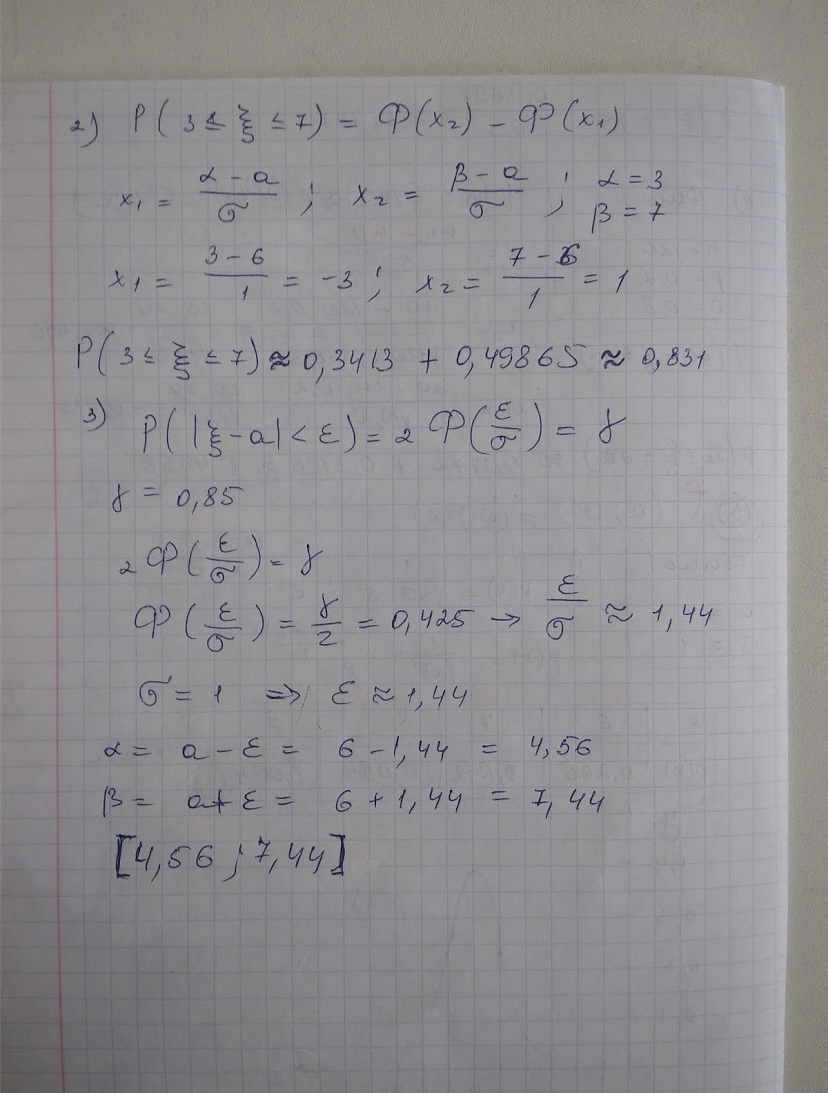 2) P( 3 ≤ ξ ≤ 7) = Φ(x₂) - Φ(x₁)
x₁ = (α - a)/σ ; x₂ = (β - a)/σ ; α = 3
β = 7
x₁ = (3 - 6)/1 = -3 ; x₂ = (7 - 6)/1 = 1
P( 3 ≤ ξ ≤ 7) ≈ 0,3413 + 0,49865 ≈ 0,831
3) P( |ξ - a| < ε) = 2 Φ(ε/σ) = γ
γ = 0,85
2 Φ(ε/σ) = γ
Φ(ε/σ) = γ/2 = 0,425 → ε/σ ≈ 1,44
σ = 1 => ε ≈ 1,44
α = a - ε = 6 - 1,44 = 4,56
β = a + ε = 6 + 1,44 = 7,44
[4,56 ; 7,44]